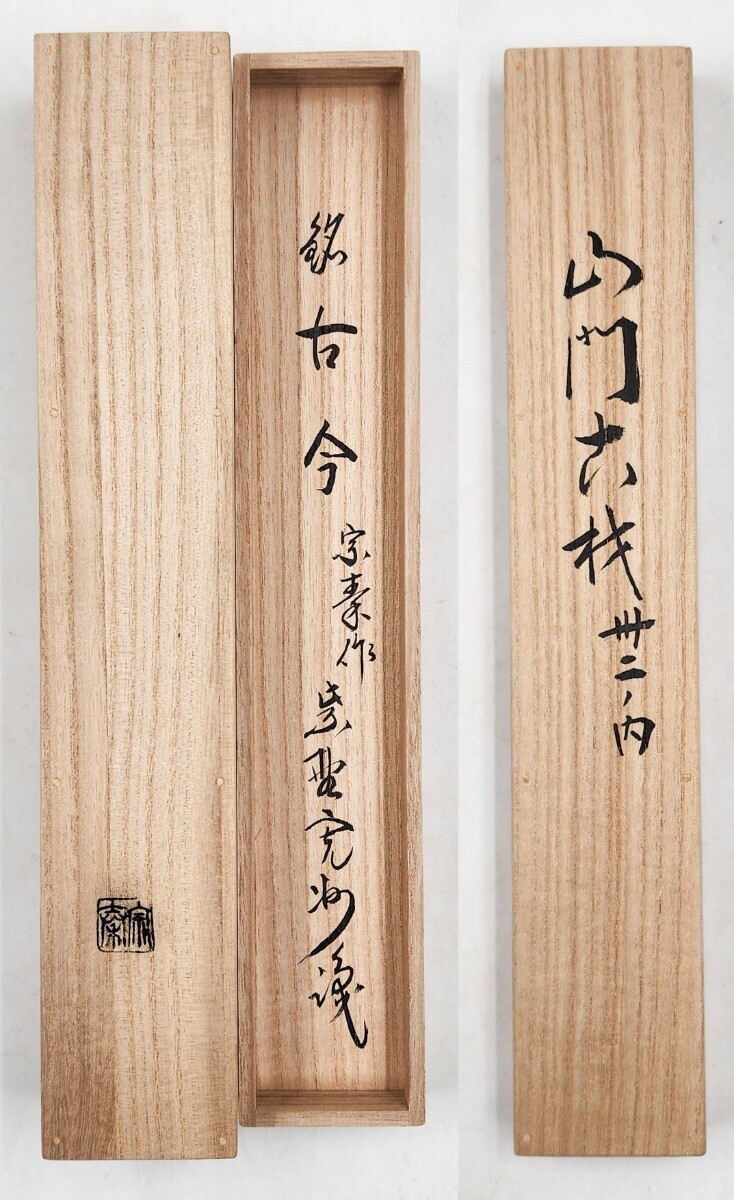 山門古材
卅二ノ内
銘 古今
宗泰作
紫野寛州識
宗泰